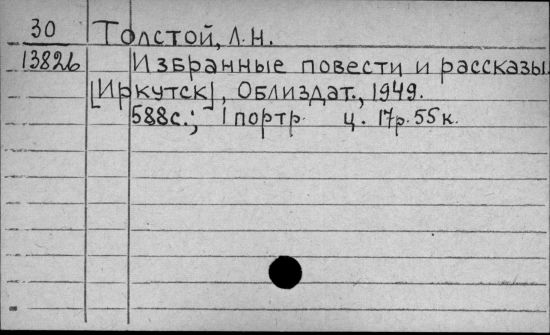 30 Толстой, Л.Н.
13826 Избранные повести и рассказы.
[Иркутск], Облиздат., 1949.
588с.; 1 портр. ц. 17р.55к.